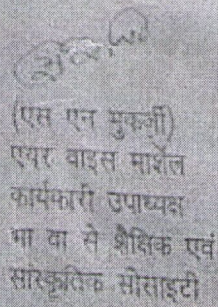 (एस एन मुकर्जी)
एयर वाइस मार्शल
कार्यकारी उपाध्यक्ष
भा वा से शैक्षिक एवं
सांस्कृतिक सोसाइटी